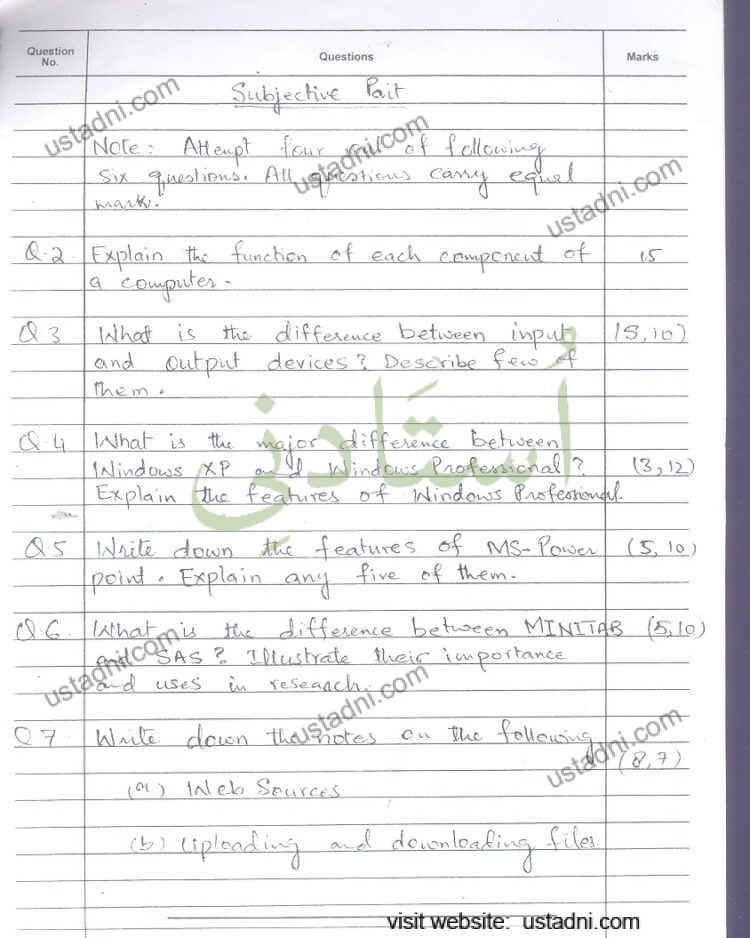 Question No. Questions Marks
Subjective Part
Note: Attempt four out of following
six questions. All questions carry equal
mark.
Q.2 Explain the function of each component of 15
a computer.
Q.3 What is the difference between input (5,10)
and output devices? Describe few of
them.
Q.4 What is the major difference between
Windows XP and Windows Professional? (3,12)
Explain the features of Windows Professional.
Q.5 Write down the features of MS-Power (5,10)
point. Explain any five of them.
Q.6 What is the difference between MINITAB (5,10)
and SAS? Illustrate their importance
and uses in research.
Q7 Write down the notes on the following
(8,7)
(a) Web Sources
(b) Uploading and downloading files.
visit website: ustadni.com
ustadni.com
ustadni.com
ustadni.com
ustadni.com
ustadni.com
ustadni.com
أُستَاذني